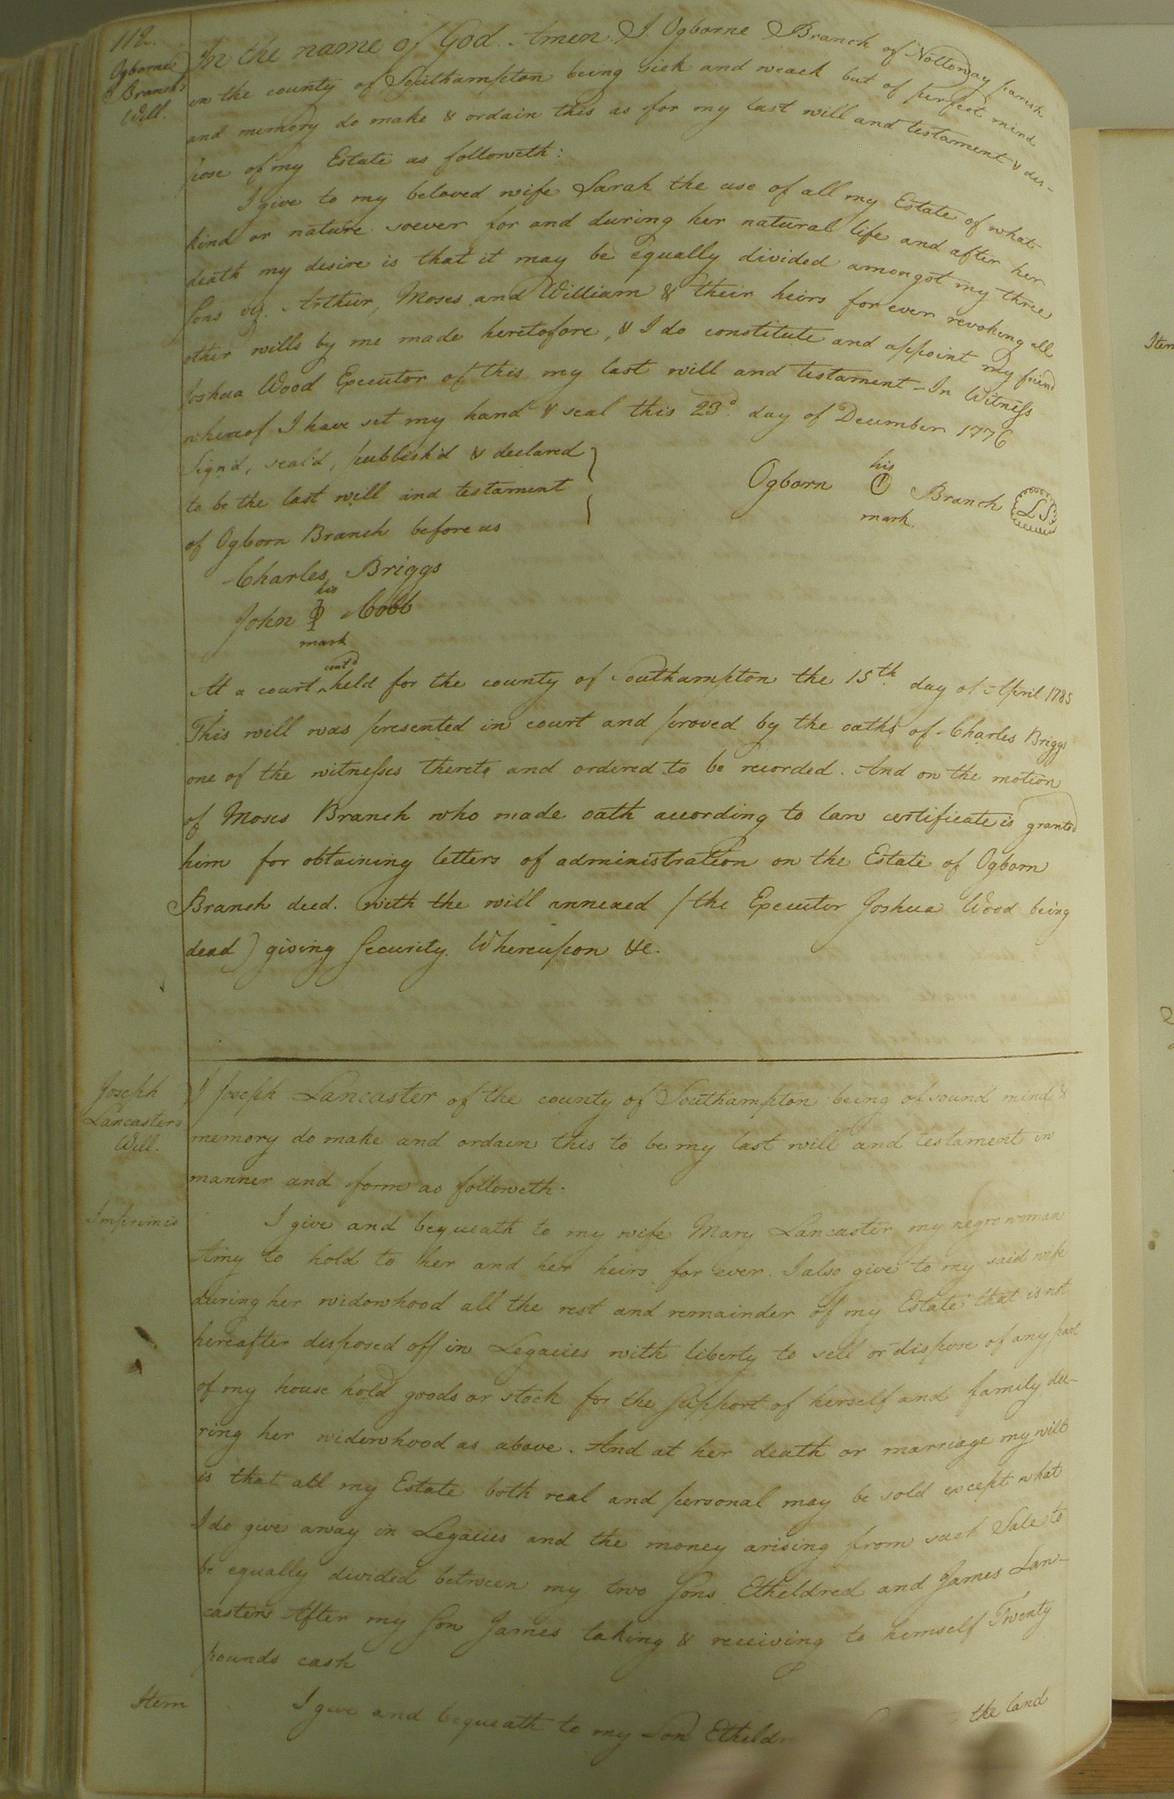 112.
Ogborne
Branch's
Will.
In the name of God. Amen. I Ogborne Branch of Nottoway parish
in the county of Southampton being sick and weak but of perfect mind
and memory do make & ordain this as for my last will and testament & dis-
pose of my Estate as followeth:
I give to my beloved wife Sarah the use of all my Estate of what
kind or nature soever for and during her natural life and after her
death my desire is that it may be equally divided amongst my three
Sons viz. Arthur, Moses and William & their heirs for ever revoking all
other wills by me made heretofore, & I do constitute and appoint my friend
Joshua Wood Executor of this my last will and testament - In Witness
whereof I have set my hand & seal this 23d. day of December 1776
Sign'd, seal'd, publish'd & declared
to be the last will and testament
of Ogborn Branch before us
his
Ogborn Branch LS
mark.
Charles Briggs
his
John Cobb
mark
cont'd
At a court held for the county of Southampton the 15th. day of April 1785
This will was presented in court and proved by the oaths of Charles Briggs
one of the witnesses thereto and ordered to be recorded. And on the motion
of Moses Branch who made oath according to law certificate is granted
him for obtaining letters of administration on the Estate of Ogborn
Branch decd. with the will annexed (the Executor Joshua Wood being
dead) giving Security. Whereupon &c.
Joseph
Lancasters
Will.
I Joseph Lancaster of the county of Southampton being of sound mind &
memory do make and ordain this to be my last will and testament in
manner and form as followeth.
Imprimis
I give and bequeath to my wife Mary Lancaster my negro woman
Amy to hold to her and her heirs for ever. I also give to my said wife
during her widowhood all the rest and remainder of my Estate that is not
hereafter disposed off in Legacies with liberty to sell or dispose of any part
of my house hold goods or stock for the Support of herself and family du-
ring her widowhood as above. And at her death or marriage my will
is that all my Estate both real and personal may be sold except what
I do give away in Legacies and the money arising from such Sale to
be equally divided between my two Sons Etheldred and James Lan-
casters After my Son James taking & receiving to himself Twenty
pounds cash
Item
I give and bequeath to my Son the land